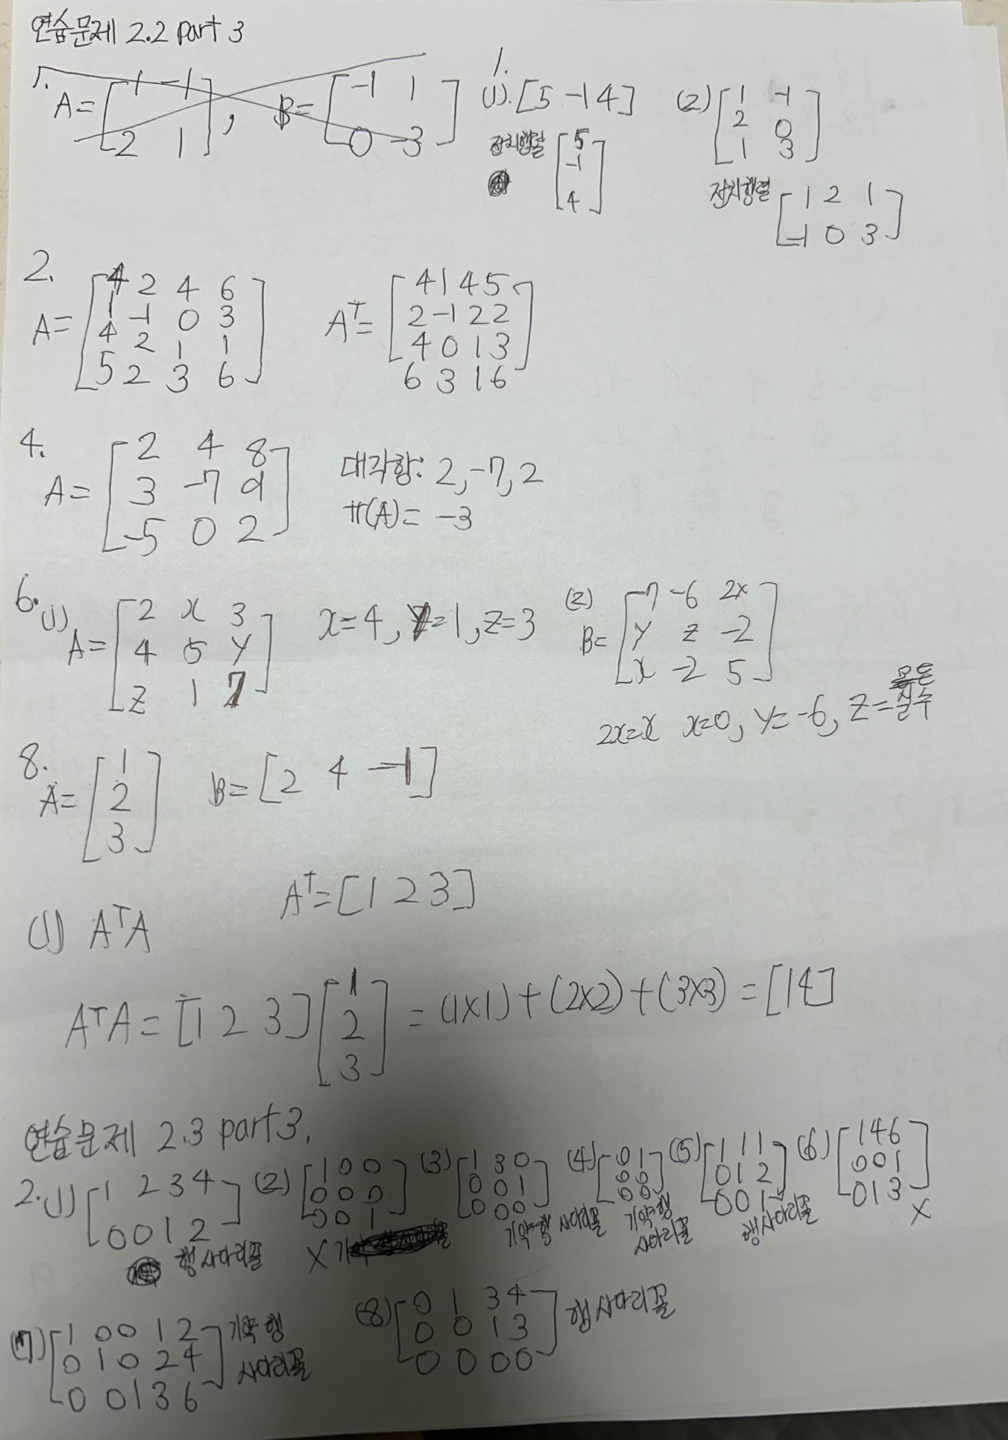 연습문제 2.2 part 3
1. A = [1 -1; 2 1], B = [-1 1; 0 -3]
1.
(1). [5 -1 4]
전치행렬 [5; -1; 4]
(2) [1 -1; 2 0; 1 3]
전치행렬 [1 2 1; -1 0 3]
2.
A = [4 2 4 6; 1 -1 0 3; 4 2 1 1; 5 2 3 6] Aᵀ = [4 1 4 5; 2 -1 2 2; 4 0 1 3; 6 3 1 6]
4.
A = [2 4 8; 3 -7 9; -5 0 2]
대각항: 2, -7, 2
tr(A) = -3
6. (1)
A = [2 x 3; 4 5 y; z 1 7] x=4, y=1, z=3
(2)
B = [-7 -6 2x; y z -2; x -2 5]
2x=x x=0, y=-6, z=모든 실수
8.
A = [1; 2; 3] B = [2 4 -1]
Aᵀ = [1 2 3]
(1) AᵀA
AᵀA = [1 2 3][1; 2; 3] = (1×1) + (2×2) + (3×3) = [14]
연습문제 2.3 part 3.
2. (1) [1 2 3 4; 0 0 1 2]
행 사다리꼴
(2) [1 0 0; 0 0 0; 0 0 1]
X
(3) [1 3 0; 0 0 1; 0 0 0]
기약행 사다리꼴
(4) [0 1; 0 0; 0 0]
기약행
사다리꼴
(5) [1 1 1; 0 1 2; 0 0 1]
행사다리꼴
(6) [1 4 6; 0 0 1; 0 1 3]
X
(7) [1 0 0 1 2; 0 1 0 2 4; 0 0 1 3 6]
기약 행
사다리꼴
(8) [0 1 3 4; 0 0 1 3; 0 0 0 0]
행 사다리꼴